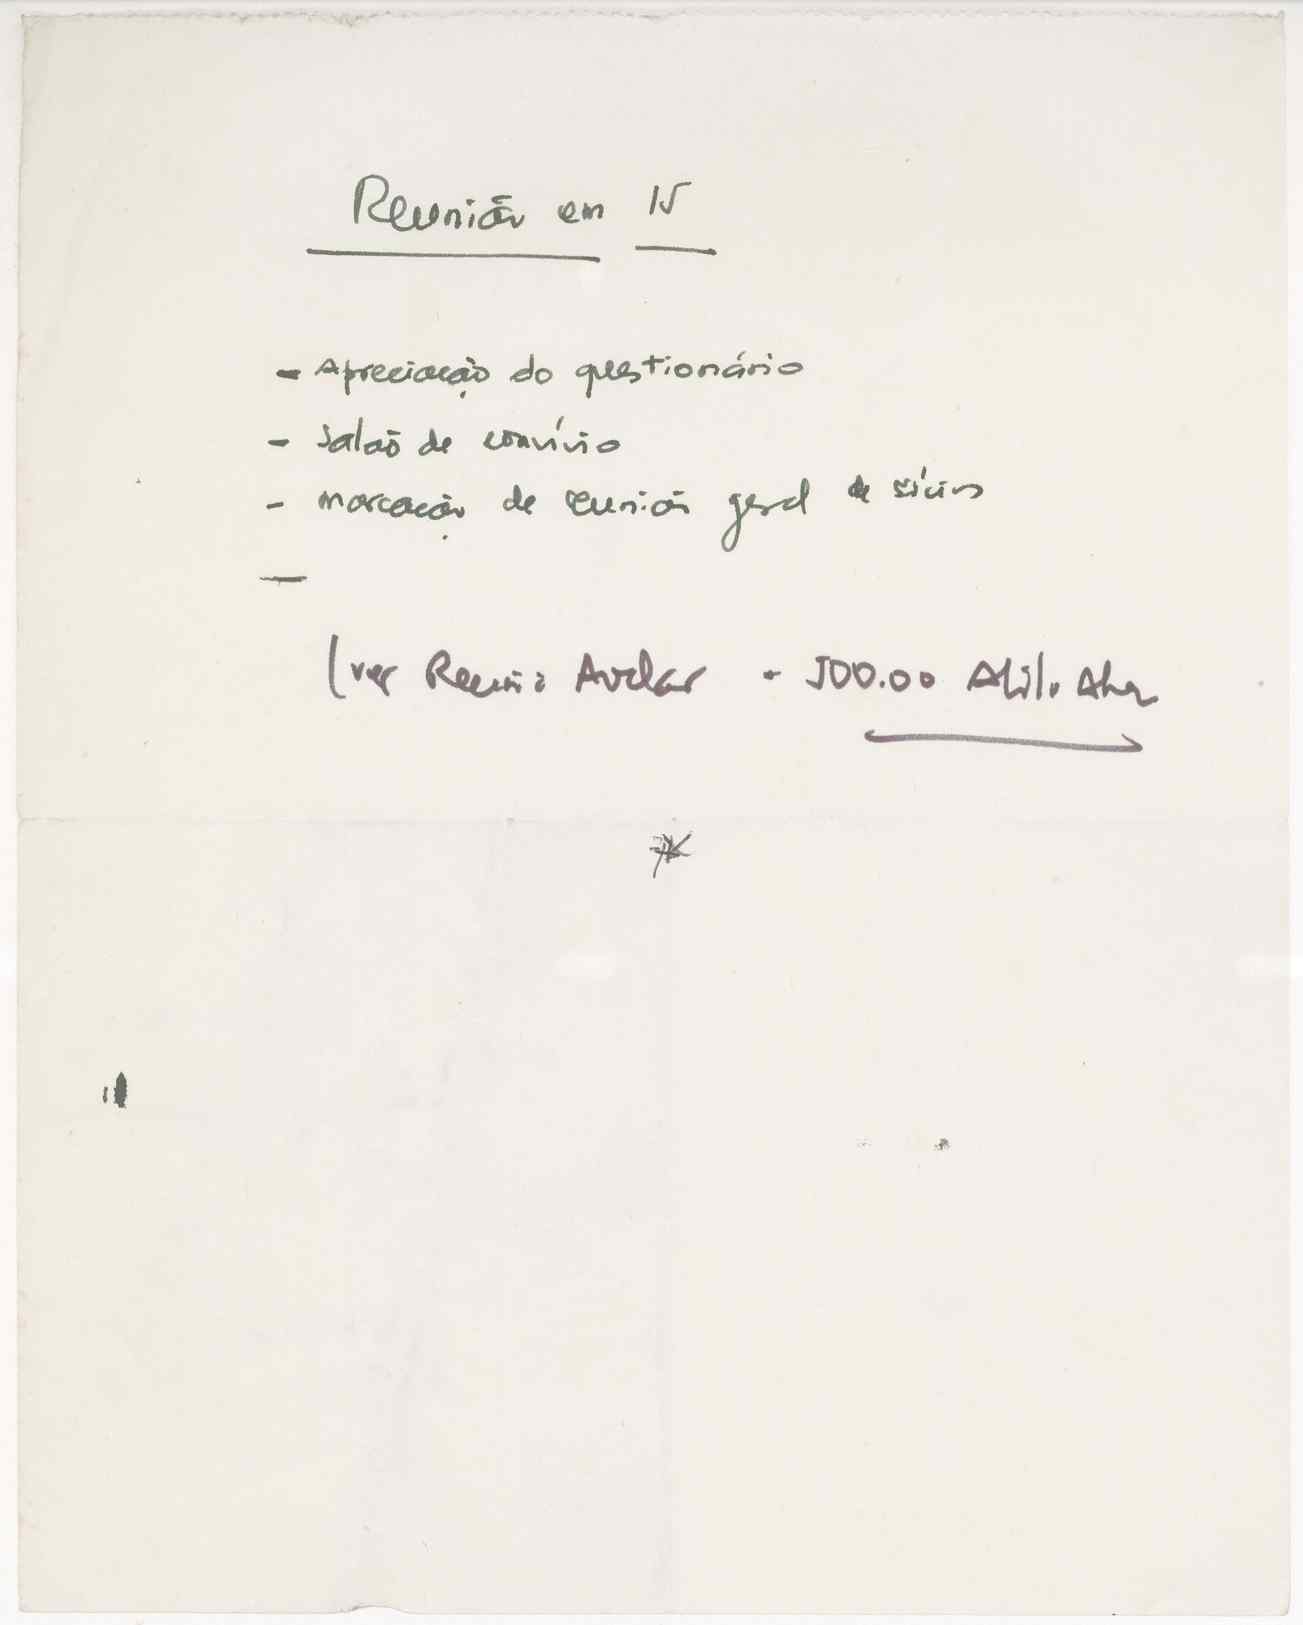 Reunião em 15
- Apreciação do questionário
- Salão de convívio
- Marcação de reunião geral de sócios
-
(ver - 500.00